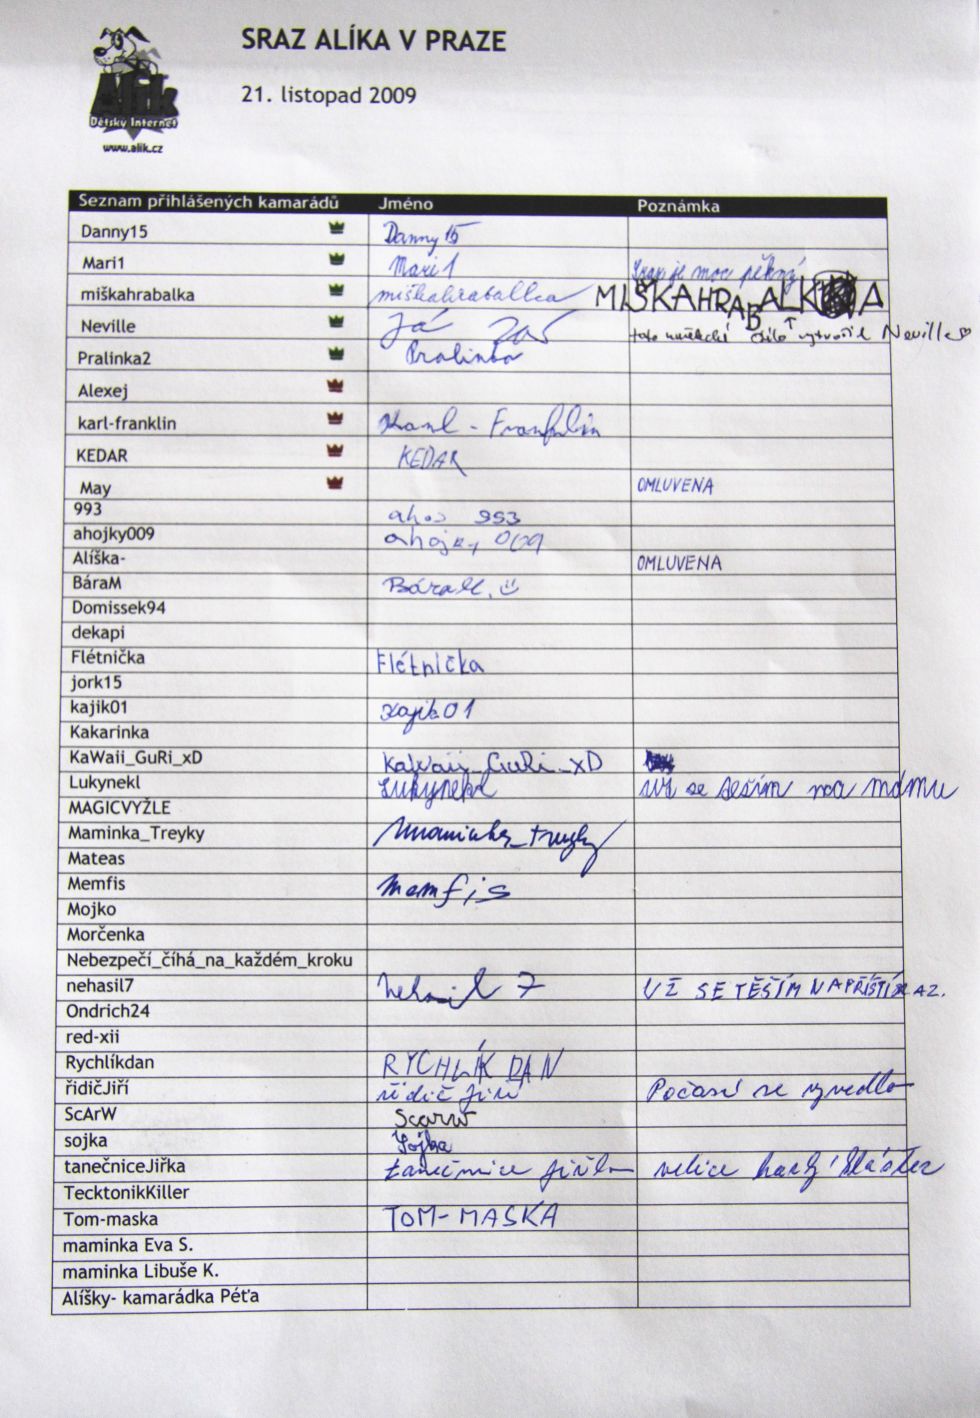 SRAZ ALÍKA V PRAZE
21. listopad 2009
Alík
Dětský Internet
www.alik.cz
Seznam přihlášených kamarádů Jméno Poznámka
Danny15 Danny 15
Mari1 Mari 1 Sraz je moc pěkný
miškahrabalka miškahraballka MIŠKAHRABALKA
Neville Já zas toto umělecké dílo vytvořil Neville
Pralinka2 Pralinka
Alexej
karl-franklin Karl - Franklin
KEDAR KEDAR
May OMLUVENA
993 ahoj 993
ahojky009 ahojky 009
Alíška- OMLUVENA
BáraM BáraM.
Domissek94
dekapi
Flétnička Flétnička
jork15
kajik01 kajik01
Kakarinka
KaWaii_GuRi_xD KaWaii_GuRi_xD
Lukynekl Lukynekl už se těším na mámu
MAGICVYŽLE
Maminka_Treyky Maminka_treyky
Mateas
Memfis Memfis
Mojko
Morčenka
Nebezpečí_číhá_na_každém_kroku
nehasil7 nehasil 7 UŽ SE TĚŠÍM NA PŘÍŠTÍ SRAZ.
Ondrich24
red-xii
Rychlíkdan RYCHLÍK DAN
řidičJiří řidič Jiří Počasí se vyvedlo
ScArW Scarw
sojka Sojka
tanečniceJiřka tanečnice Jiřka velice hezký klášter
TecktonikKiller
Tom-maska TOM-MASKA
maminka Eva S.
maminka Libuše K.
Alíšky- kamarádka Péťa